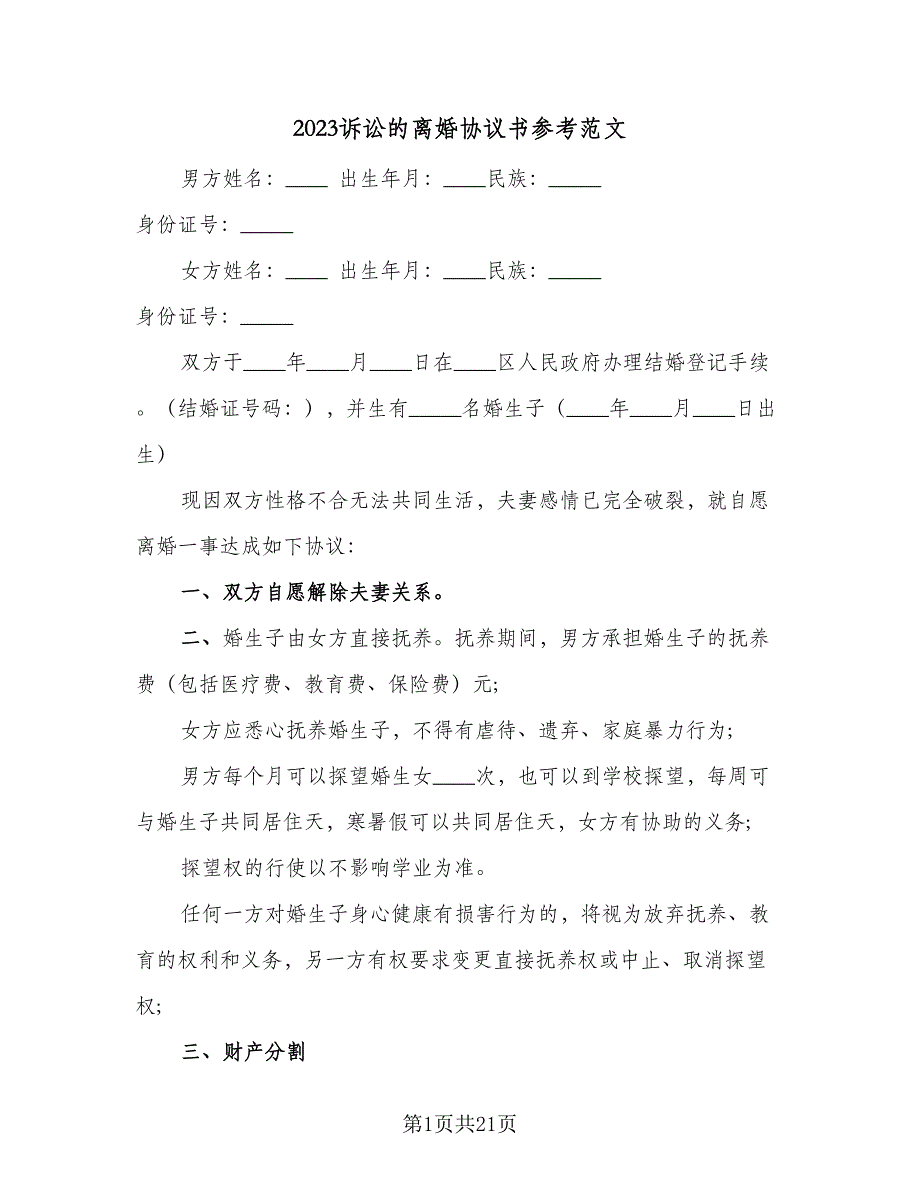 2023诉讼的离婚协议书参考范文
男方姓名：____ 出生年月：____民族：_____
身份证号：_____
女方姓名：____ 出生年月：____民族：_____
身份证号：_____
双方于____年____月____日在____区人民政府办理结婚登记手续
。（结婚证号码：），并生有_____名婚生子（____年____月____日出
生）
现因双方性格不合无法共同生活，夫妻感情已完全破裂，就自愿
离婚一事达成如下协议：
一、双方自愿解除夫妻关系。
二、婚生子由女方直接抚养。抚养期间，男方承担婚生子的抚养
费（包括医疗费、教育费、保险费）元;
女方应悉心抚养婚生子，不得有虐待、遗弃、家庭暴力行为;
男方每个月可以探望婚生女____次，也可以到学校探望，每周可
与婚生子共同居住天，寒暑假可以共同居住天，女方有协助的义务;
探望权的行使以不影响学业为准。
任何一方对婚生子身心健康有损害行为的，将视为放弃抚养、教
育的权利和义务，另一方有权要求变更直接抚养权或中止、取消探望
权;
三、财产分割
第1页共21页